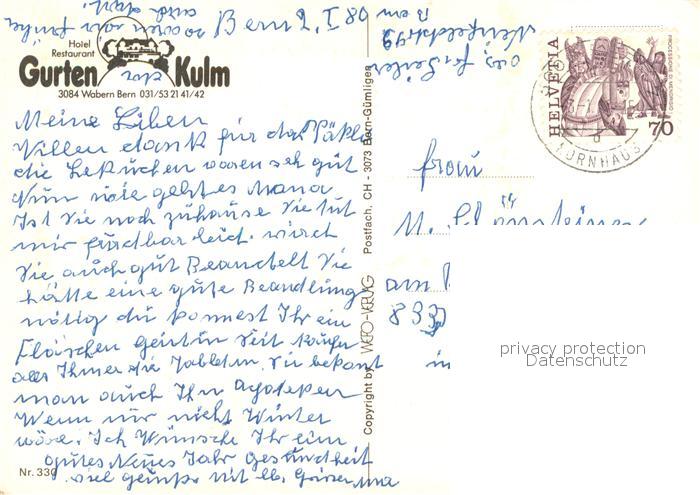 Bern 2. I 80
Hotel
Restaurant
Gurten Kulm
3084 Wabern Bern 031/53 21 41/42
Meine Liben
Villen dank für das Päkle
die Lekuchen waren seh gut
Nun wie geht es Mama
Ist Sie noch zuhause Sie tut
mir furdbar leid. wirdt
Sie auch gut Beandelt Sie
hätte eine gute Beandlung
nötig du konnest Ihr ein
Fläschen geistin Seit kaufen
als Ihmer die Tabletten. Sie bekomt
man auch Ihn Apoteken
Wenn nur nicht Winter
wäre. Ich Wünsche Ihr eim
gutes Neues Jahr gesundheit
viel grüsse mit lb. Grüsse
Nr. 330
Copyright by WEPO-VERLAG Postfach, CH - 3073 Bern-Gümligen
HELVETIA
70
KORNHAUS
frau
M. Schönsteiner
am
833
in
privacy protection
Datenschutz